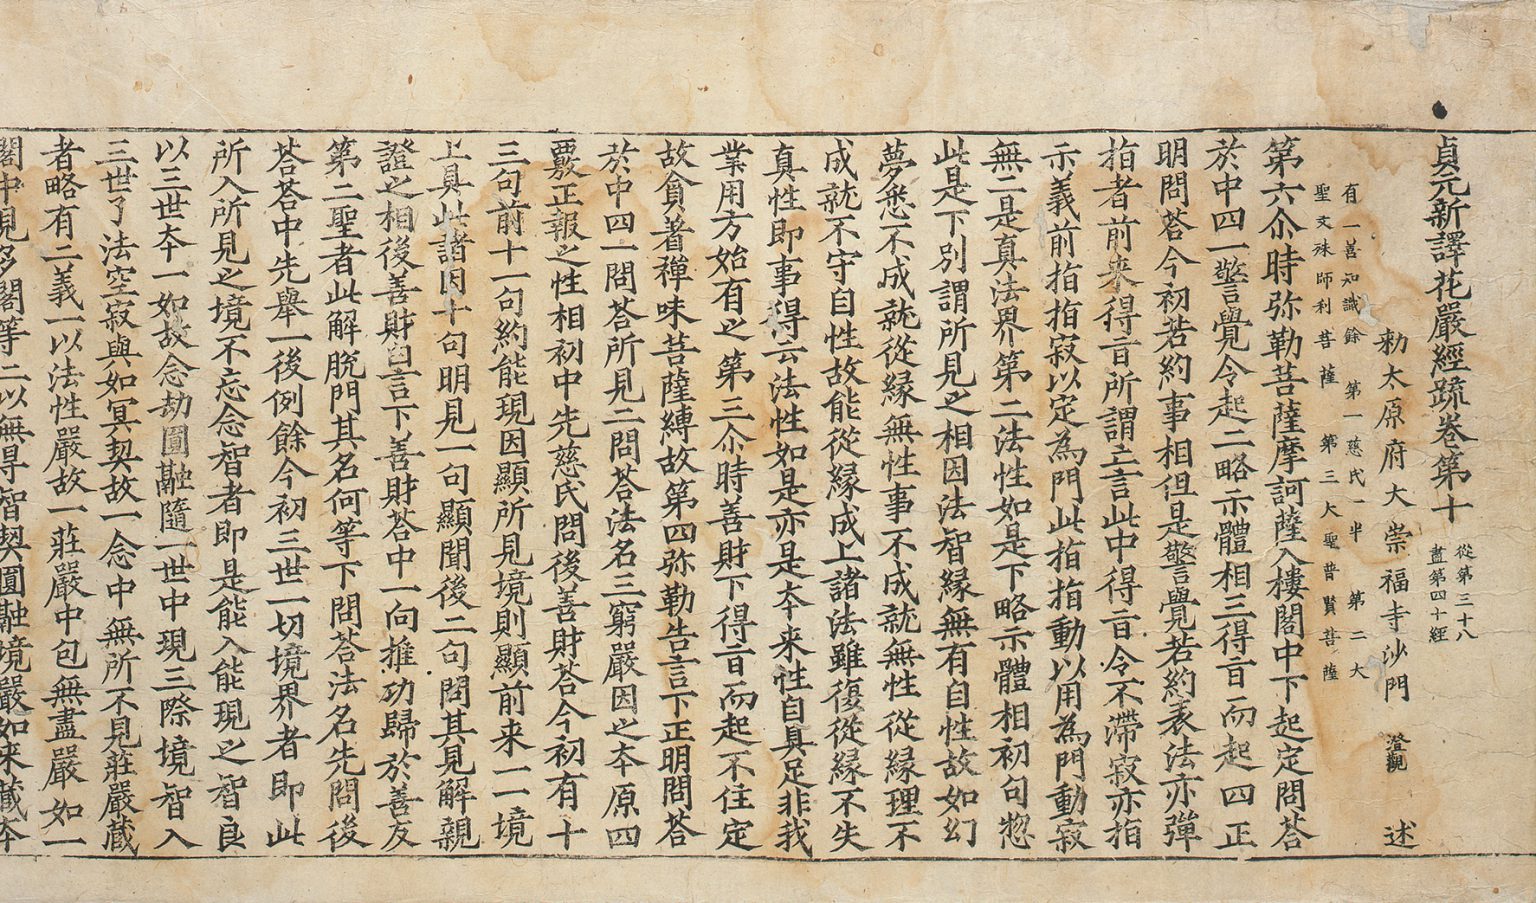 貞元新譯花嚴經疏卷第十
從第三十八
盡第四十經
勅太原府大崇福寺沙門 澄觀 述
有一善知識餘 第一慈氏一半 第二大
聖文殊師利菩薩 第三大聖普賢菩薩
第六尒時弥勒菩薩摩訶薩入樓閣中下起定問荅
於中四一警覺令起二略示體相三得旨而起四正
明問荅今初若約事相但是警覺若約表法亦彈
指者前来得旨所謂亡言此中得旨令不滯寂亦指
示義前指指寂以定為門此指指動以用為門動寂
無二是真法界第二法性如是下略示體相初句惣
此是下別謂所見之相因法智縁無有自性故如幻
夢悉不成就從縁無性事不成就無性從縁理不
成就不守自性故能從縁成上諸法雖復從縁不失
真性即事得云法性如是亦是夲来性自具足非我
業用方始有之第三尒時善財下得旨而起不住定
故貪著禪味菩薩縛故第四弥勒告言下正明問荅
於中四一問荅所見二問荅法名三窮嚴因之夲原四
覈正報之性相初中先慈氏問後善財荅今初有十
三句前十一句約能現因顯所見境則顯前来一一境
上具此諸因十句明見一句顯聞後二句問其見解親
證之相後善財白言下善財荅中一向推功歸於善友
第二聖者此解脫門其名何等下問荅法名先問後
荅荅中先舉一後例餘今初三世一切境界者即此
所入所見之境不忘念智者即是能入能現之智良
以三世夲一如故念劫圓融隨一世中現三際境智入
三世了法空寂與如冥契故一念中無所不見莊嚴蔵
者略有二義一以法性嚴故一莊嚴中包無盡嚴如一
閣中見多閣等二以無㝵智契圓融境嚴如来蔵夲